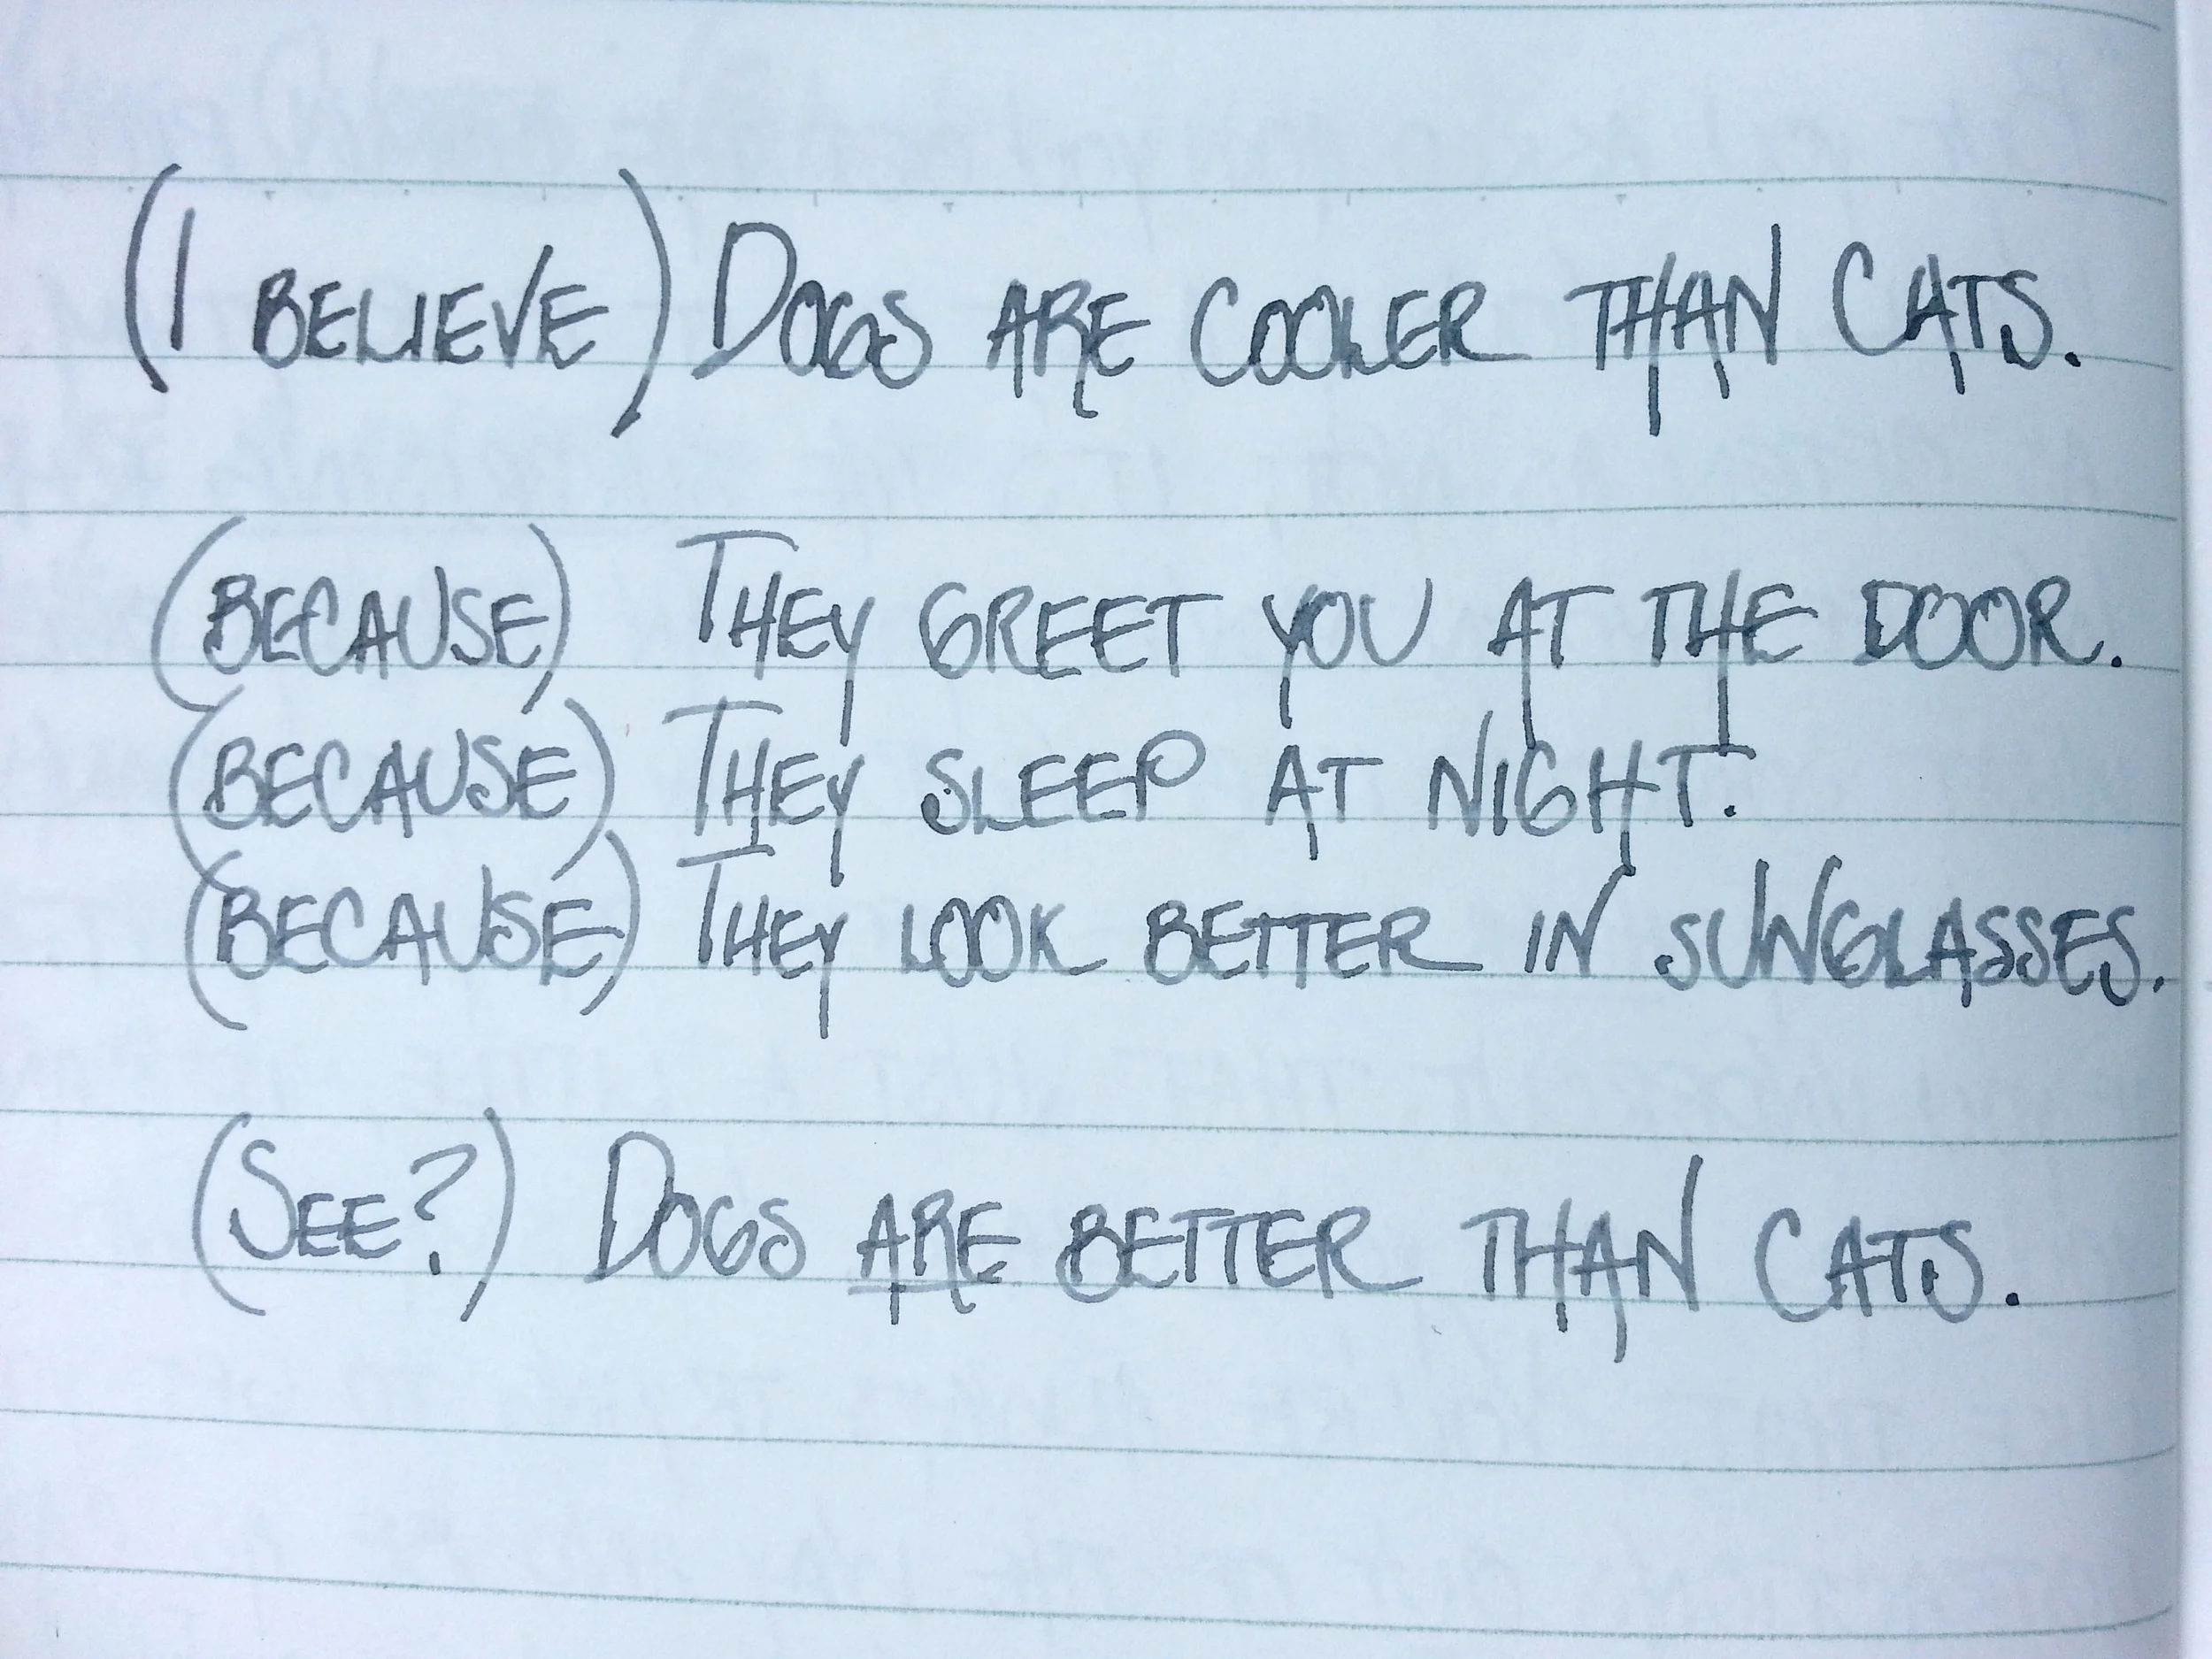 (I BELIEVE) DOGS ARE COOLER THAN CATS.
(BECAUSE) THEY GREET YOU AT THE DOOR.
(BECAUSE) THEY SLEEP AT NIGHT.
(BECAUSE) THEY LOOK BETTER IN SUNGLASSES.
(SEE?) DOGS ARE BETTER THAN CATS.